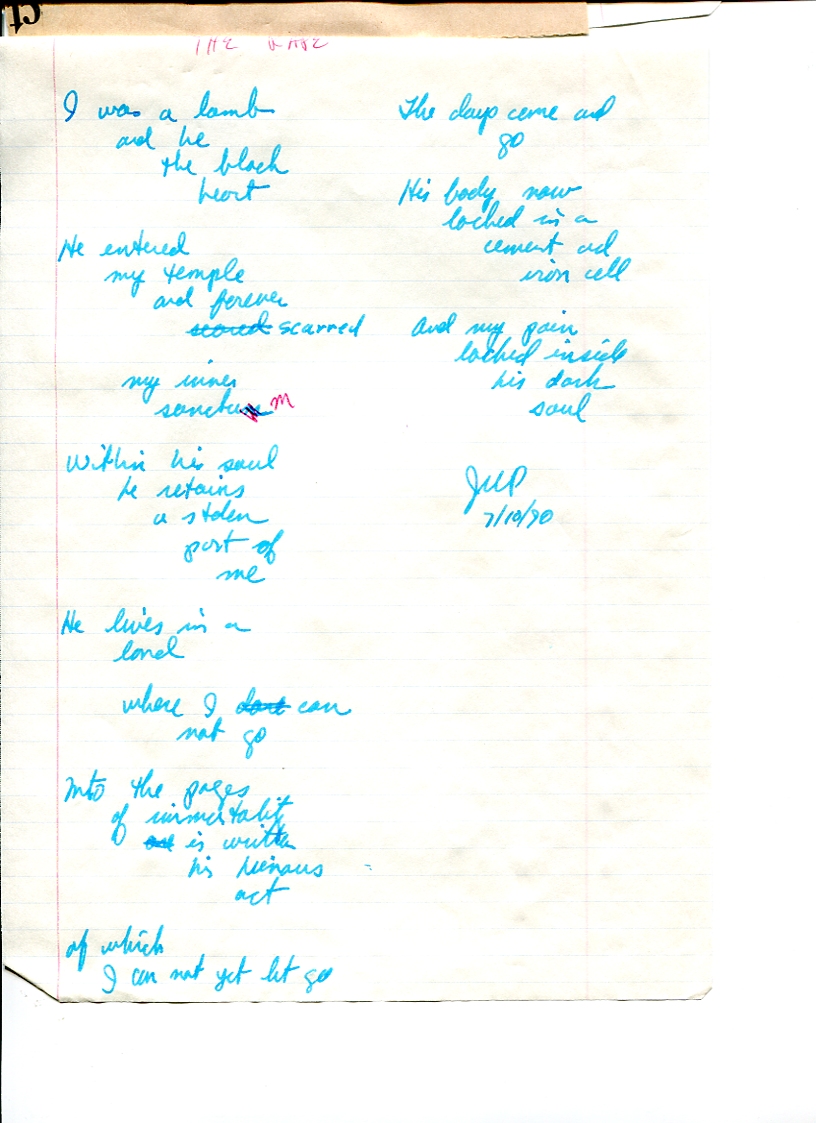 THE RAPE
I was a lamb
and he
the black
heart
He entered
my temple
and forever
scarred
my inner
sanctum
Within his soul
he retains
a stolen
part of
me
He lives in a
land
where I can
not go
Into the pages
of immortality
is written
his hienous
act
of which
I can not yet let go
The days come and
go
His body now
locked in a
cement and
iron cell
And my pain
locked inside
his dark
soul
JWP
7/10/90